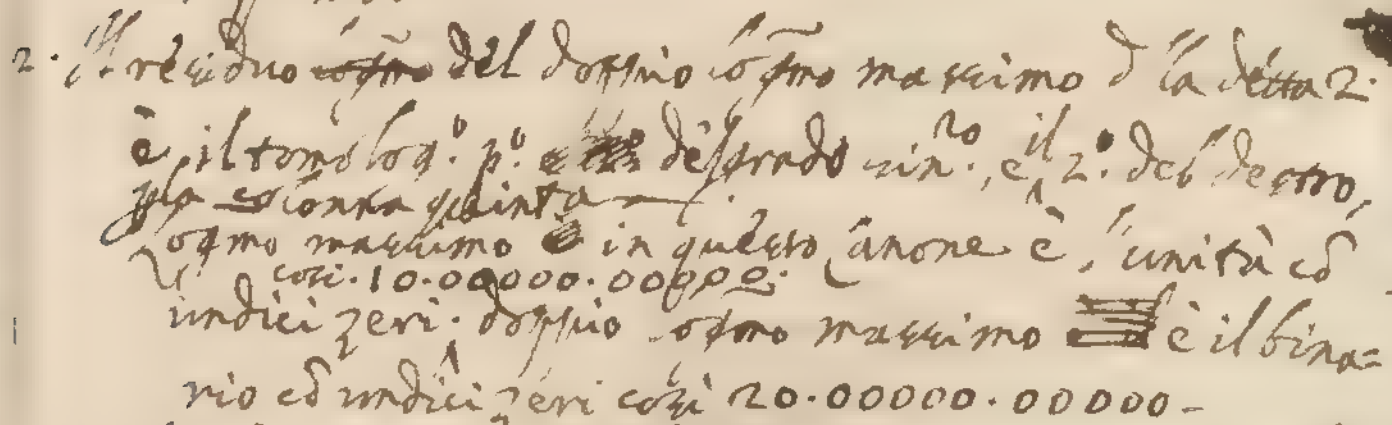 2. Il residuo del doppio logmo massimo d la detta 2.
è il tomologo. po. del grado sin.ro, e il 2.o del destro,
colonna quinta
logmo massimo in questo Canone è l'unità cō
così. 10.00000.00000.
undici zeri. doppio logmo massimo è il bina=
rio cō undici zeri così 20.00000.00000-